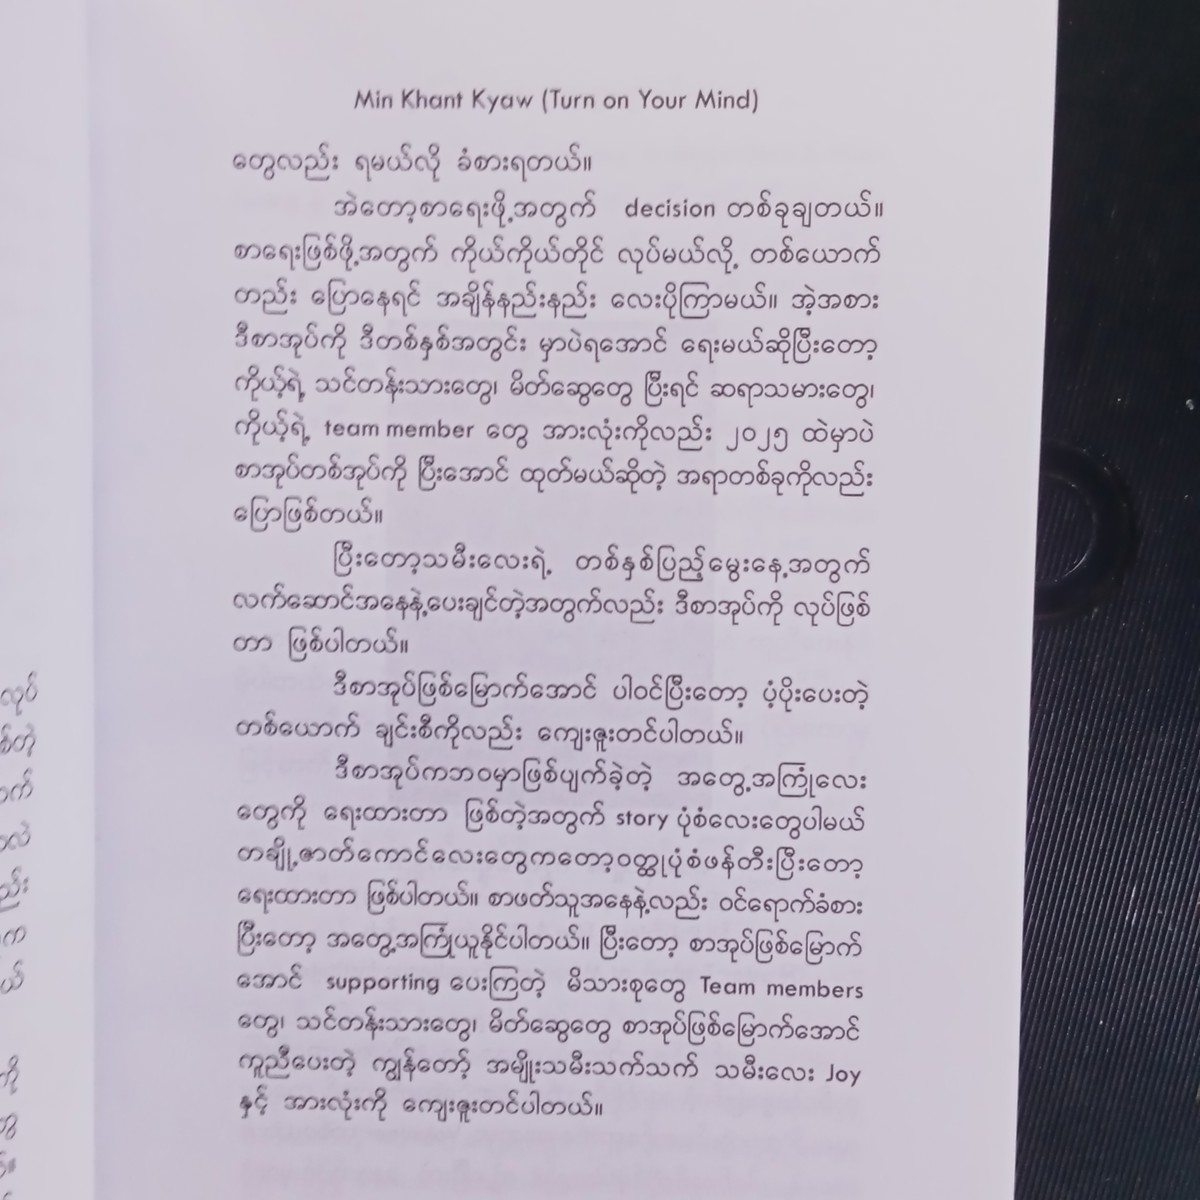 Min Khant Kyaw (Turn on Your Mind)
တွေလည်း ရမယ်လို ခံစားရတယ်။
အဲတော့စာရေးဖို့အတွက် decision တစ်ခုချတယ်။
စာရေးဖြစ်ဖို့အတွက် ကိုယ်ကိုယ်တိုင် လုပ်မယ်လို့ တစ်ယောက်
တည်း ပြောနေရင် အချိန်နည်းနည်း လေးပိုကြာမယ်။ အဲ့အစား
ဒီစာအုပ်ကို ဒီတစ်နှစ်အတွင်း မှာပဲရအောင် ရေးမယ်ဆိုပြီးတော့
ကိုယ့်ရဲ့ သင်တန်းသားတွေ၊ မိတ်ဆွေတွေ ပြီးရင် ဆရာသမားတွေ၊
ကိုယ့်ရဲ့ team member တွေ အားလုံးကိုလည်း ၂၀၂၅ ထဲမှာပဲ
စာအုပ်တစ်အုပ်ကို ပြီးအောင် ထုတ်မယ်ဆိုတဲ့ အရာတစ်ခုကိုလည်း
ပြောဖြစ်တယ်။
ပြီးတော့သမီးလေးရဲ့ တစ်နှစ်ပြည့်မွေးနေ့အတွက်
လက်ဆောင်အနေနဲ့ပေးချင်တဲ့အတွက်လည်း ဒီစာအုပ်ကို လုပ်ဖြစ်
တာ ဖြစ်ပါတယ်။
ဒီစာအုပ်ဖြစ်မြောက်အောင် ပါဝင်ပြီးတော့ ပံ့ပိုးပေးတဲ့
တစ်ယောက် ချင်းစီကိုလည်း ကျေးဇူးတင်ပါတယ်။
ဒီစာအုပ်ကဘဝမှာဖြစ်ပျက်ခဲ့တဲ့ အတွေ့အကြုံလေး
တွေကို ရေးထားတာ ဖြစ်တဲ့အတွက် story ပုံစံလေးတွေပါမယ်
တချို့ဇာတ်ကောင်လေးတွေကတော့ဝတ္ထုပုံစံဖန်တီးပြီးတော့
ရေးထားတာ ဖြစ်ပါတယ်။ စာဖတ်သူအနေနဲ့လည်း ဝင်ရောက်ခံစား
ပြီးတော့ အတွေ့အကြုံယူနိုင်ပါတယ်။ ပြီးတော့ စာအုပ်ဖြစ်မြောက်
အောင် supporting ပေးကြတဲ့ မိသားစုတွေ Team members
တွေ၊ သင်တန်းသားတွေ၊ မိတ်ဆွေတွေ စာအုပ်ဖြစ်မြောက်အောင်
ကူညီပေးတဲ့ ကျွန်တော့် အမျိုးသမီးသက်သက် သမီးလေး Joy
နှင့် အားလုံးကို ကျေးဇူးတင်ပါတယ်။